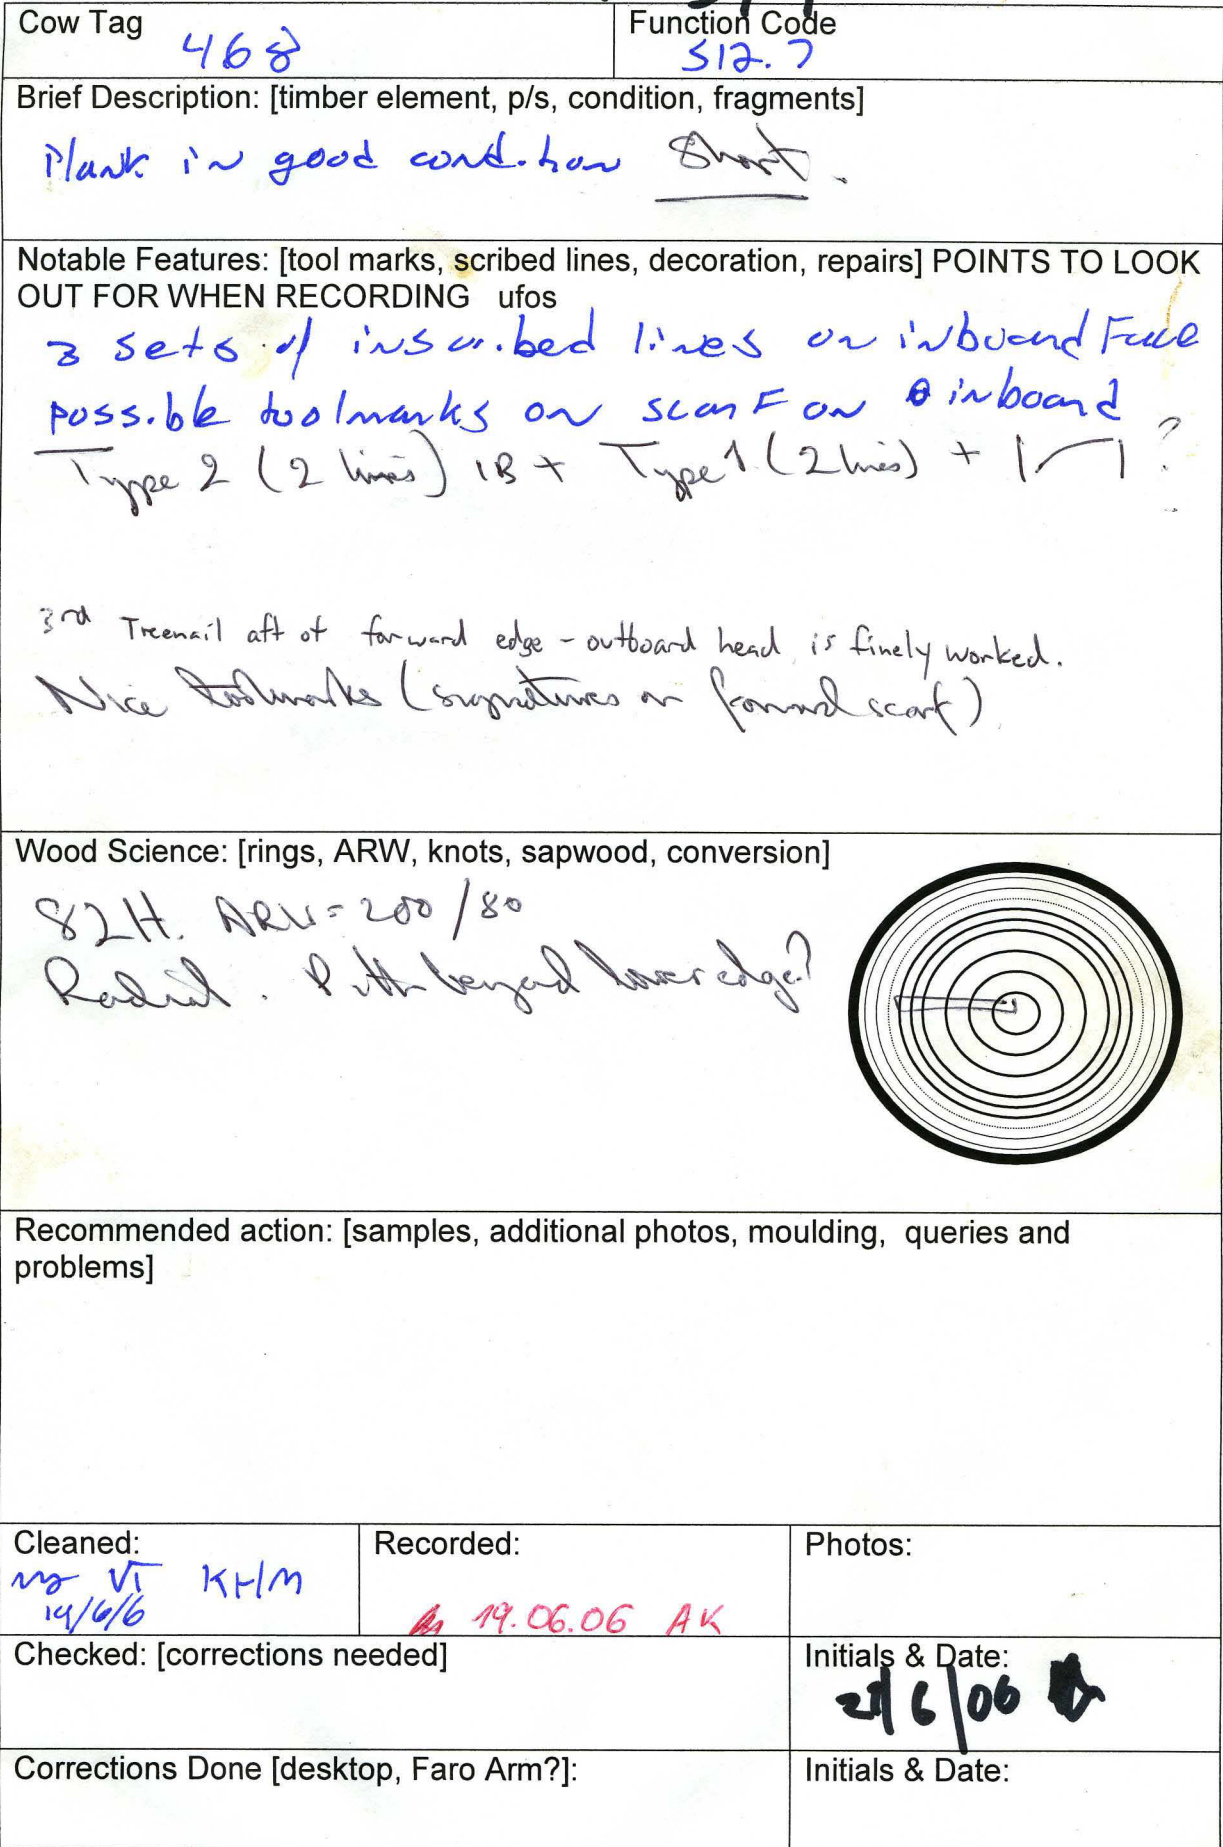 Cow Tag
468
Function Code
S12.7
Brief Description: [timber element, p/s, condition, fragments]
Plank in good condition Short.
Notable Features: [tool marks, scribed lines, decoration, repairs] POINTS TO LOOK
OUT FOR WHEN RECORDING ufos
3 sets of inscribed lines on inboard Face
possible toolmarks on scarf on inboard
Type 2 (2 lines) IB + Type 1 (2 lines) + ?
3rd Treenail aft of forward edge - outboard head is finely worked.
Nice toolmarks (signatures on forward scarf)
Wood Science: [rings, ARW, knots, sapwood, conversion]
82H. ARW = 200/80
Radial. Pith beyond lower edge?
Recommended action: [samples, additional photos, moulding, queries and
problems]
Cleaned:
KHM
19/6/6
Recorded:
19.06.06 AK
Photos:
Checked: [corrections needed]
Initials & Date:
6/06
Corrections Done [desktop, Faro Arm?]:
Initials & Date: